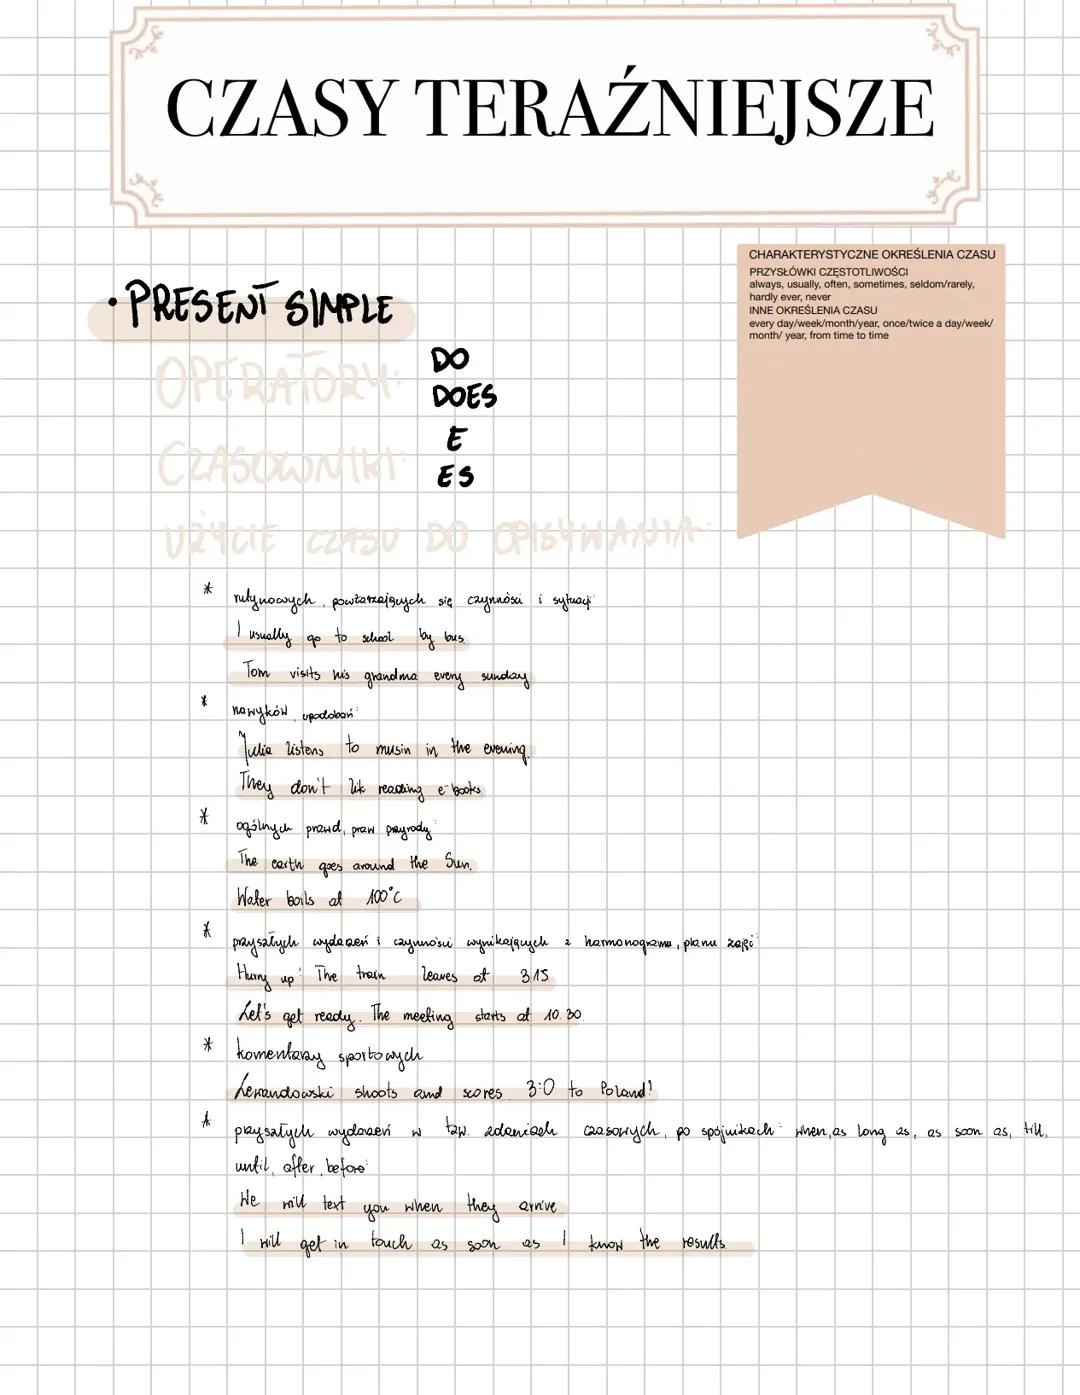 CZASY TERAŹNIEJSZE
CHARAKTERYSTYCZNE OKREŚLENIA CZASU
PRZYSŁÓWKI CZĘSTOTLIWOŚCI
always, usually, often, sometimes, seldom/rarely,
hardly ever, never
INNE OKREŚLENIA CZASU
every day/week/month/year, once/twice a day/week/
month/ year, from time to time
• PRESENT SIMPLE
OPERATORY: DO
DOES
CZASOWNIKI: E
ES
UŻYCIE CZASU DO OPISYWANIA:
* rutynowych, powtarzających się czynności i sytuacji
I usually go to school by bus.
Tom visits his grandma every sunday
* nawyków, upodobań:
Julia listens to musin in the evening.
They don't lik reading e-books
* ogólnych prawd, praw przyrody:
The earth goes around the Sun.
Water boils at 100°C
* przyszłych wydarzeń i czynności wynikających z harmonogramu, planu zajęć:
Hurry up! The train leaves at 3.15.
Let's get ready. The meeting starts at 10.30.
* komentarzy sportowych
Lewandowski shoots and scores. 3:0 to Poland!
* przyszłych wydarzeń w tzw. zdaniach czasowych, po spójnikach: when, as long as, as soon as, till,
until, after, before:
We will text you when they arrive.
I will get in touch as soon as I know the results